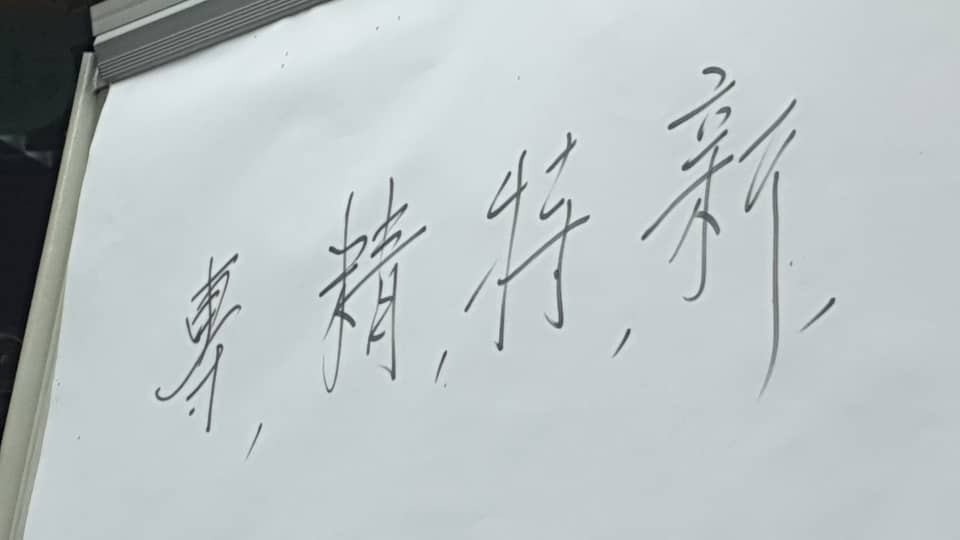 專,精,特,新,